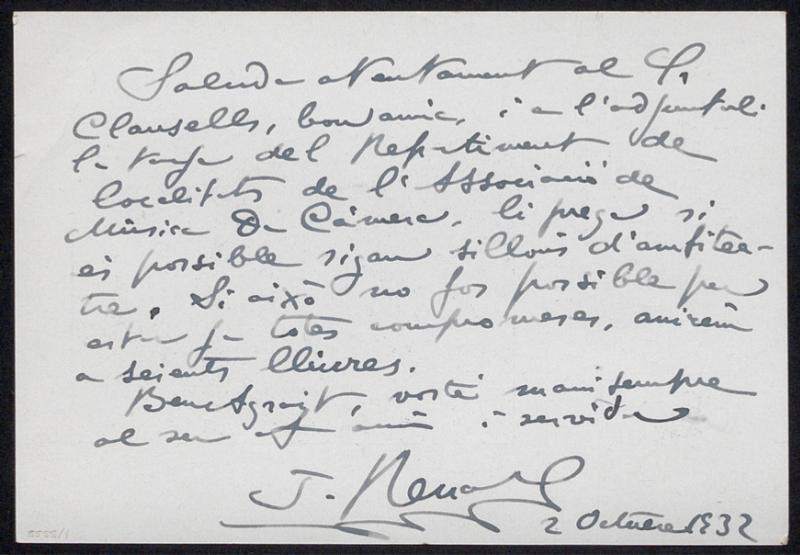 Saluda atentament al Sr
Clausells, bon amic, i a l'adjuntar-li
la tarja del Repartiment de
localitats de l'Associació de
Música Da Càmera, li prega si
és possible sigan sillons d'amfitea-
tre. Si això no fos possible per
estar ja totes compromeses, anirem
a seients lliures.
Ben agraït, vostè mani sempre
al seu afm amic i servidor
J.
2 Octubre 1932